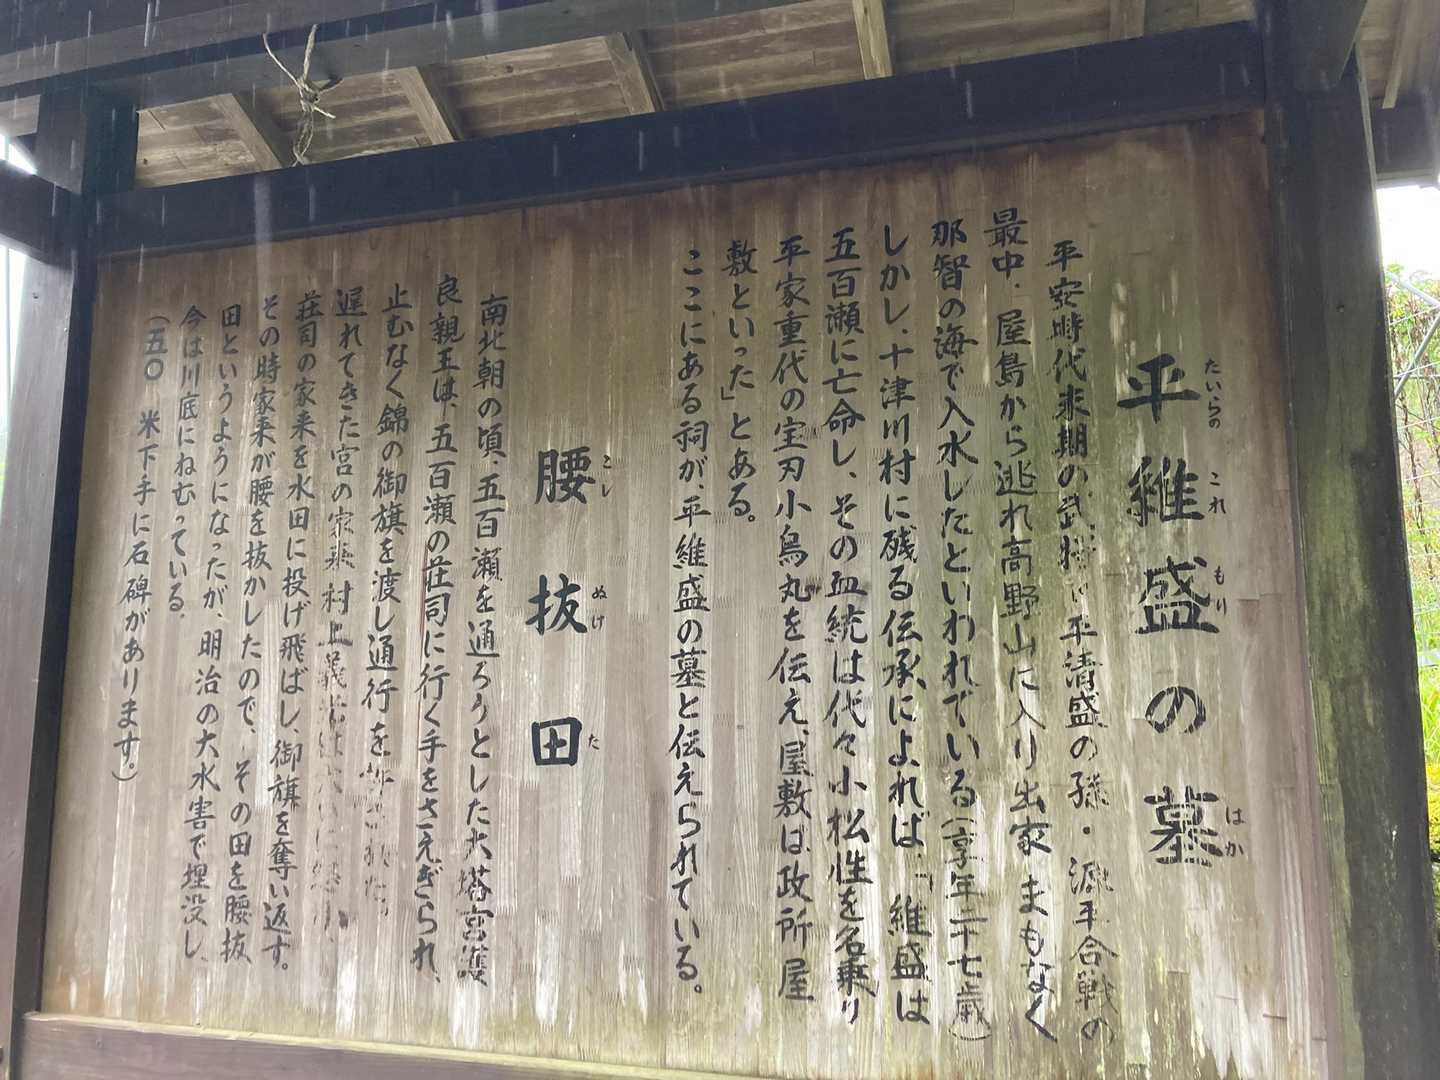 平維盛の墓
たいらの これ もり はか
平安時代末期の武将で平清盛の孫・源平合戦の
最中、屋島から逃れ高野山に入り出家 まもなく
那智の海で入水したといわれている(享年二十七歳)
しかし、十津川村に残る伝承によれば、「維盛は
五百瀬に亡命し、その血統は代々小松性を名乗り
平家重代の宝刃小烏丸を伝え、屋敷は政所屋
敷といった」とある。
ここにある祠が、平維盛の墓と伝えられている。
腰抜田
こし ぬけ た
南北朝の頃、五百瀬を通ろうとした大塔宮護
良親王は、五百瀬の荘司に行く手をさえぎられ、
止むなく錦の御旗を渡し通行を
遅れてきた宮の家来村上義光は大いに怒り、
荘司の家来を水田に投げ飛ばし、御旗を奪い返す。
その時家来が腰を抜かしたので、その田を腰抜
田というようになったが、明治の大水害で埋没し、
今は川底にねむっている。
(五〇米下手に石碑があります。)